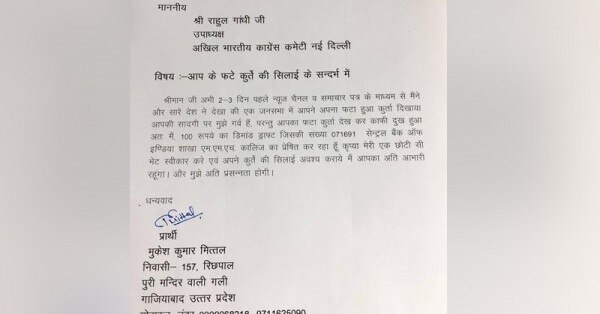 माननीय
श्री राहुल गांधी जी
उपाध्यक्ष
अखिल भारतीय कांग्रेस कमेटी नई दिल्ली
विषय :–आप के फटे कुर्ते की सिलाई के सन्दर्भ में
श्रीमान जी अभी 2–3 दिन पहले न्यूज चैनल व समाचार पत्र के माध्यम से मैने
और सारे देश ने देखा की एक जनसभा में आपने अपना फटा हुआ कुर्ता दिखाया
आपकी सादगी पर मुझे गर्व हैं, परन्तु आपका फटा कुर्ता देख कर काफी दुख हुआ
अतः मैं, 100 रूपये का डिमांड ड्राफ्ट जिसकी संख्या 071691 सेन्ट्रल बैंक ऑफ
इण्डिया शाखा एम.एम.एच. कालिज का प्रेषित कर रहा हूँ कृप्या मेरी एक छोटी सी
भेट स्वीकार करे एवं अपने कुर्ते की सिलाई अवश्य कराये मैं आपका अति आभारी
रहूंगा। और मुझे अति प्रसन्नता होगी।
धन्यवाद
प्रार्थी
मुकेश कुमार मित्तल
निवासी– 157, रिछपाल
पुरी मन्दिर वाली गली
गाजियाबाद उत्तर प्रदेश